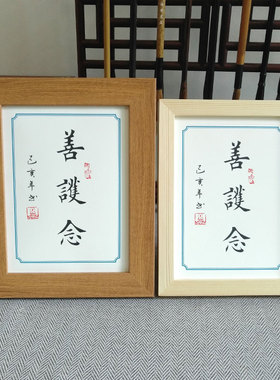 善護念
己亥年
善護念
己亥年